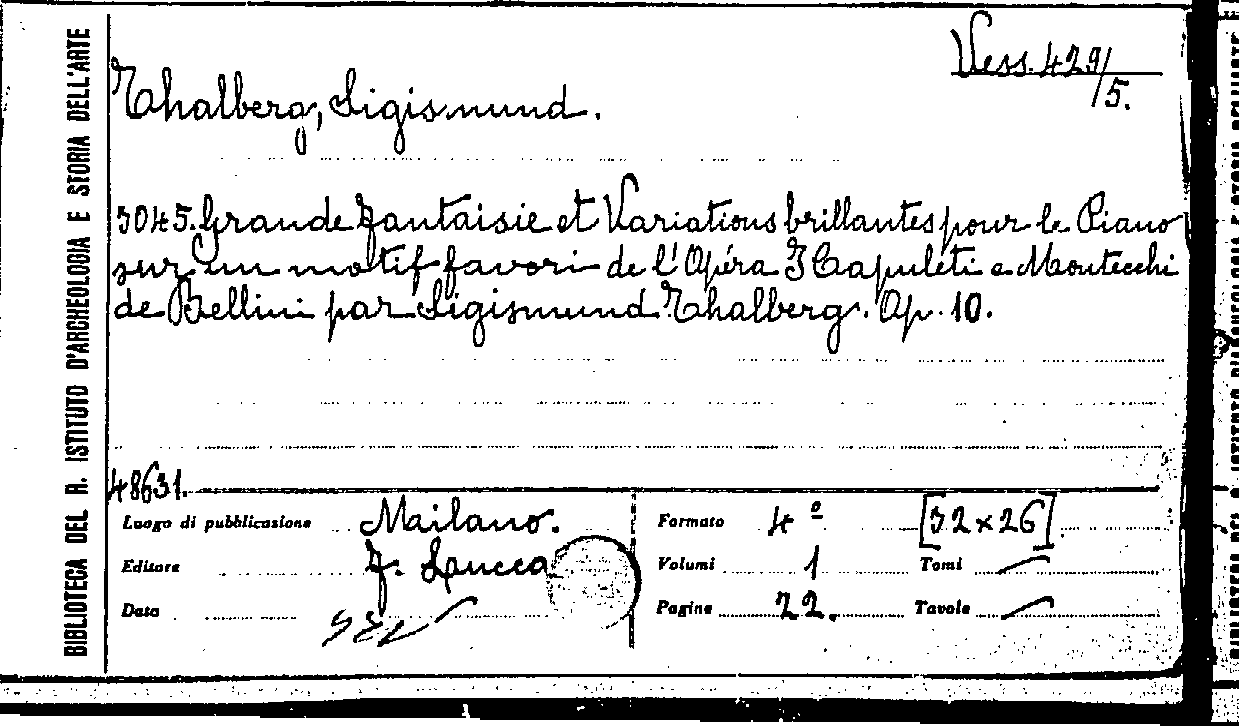 BIBLIOTECA DEL R. ISTITUTO D'ARCHEOLOGIA E STORIA DELL'ARTE
Vess. 429/5.
Thalberg, Sigismund.
3045. Grande Fantaisie et Variations brillantes pour le Piano
sur un motif favori de l'Opéra I Capuleti e Montecchi
de Bellini par Sigismund Thalberg. Op. 10.
48631.
Luogo di pubblicazione Mailano. Formato 4º [32x26]
Editore F. Lucca Volumi 1 Tomi —
Data Pagine 22. Tavole —